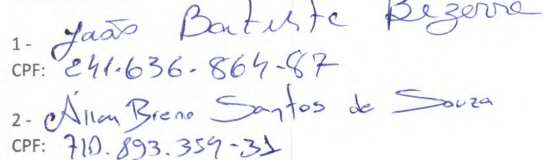 1 - João Batista Bezerra
CPF: 241.636.864-87
2 - Állan Breno Santos de Souza
CPF: 710.893.354-31